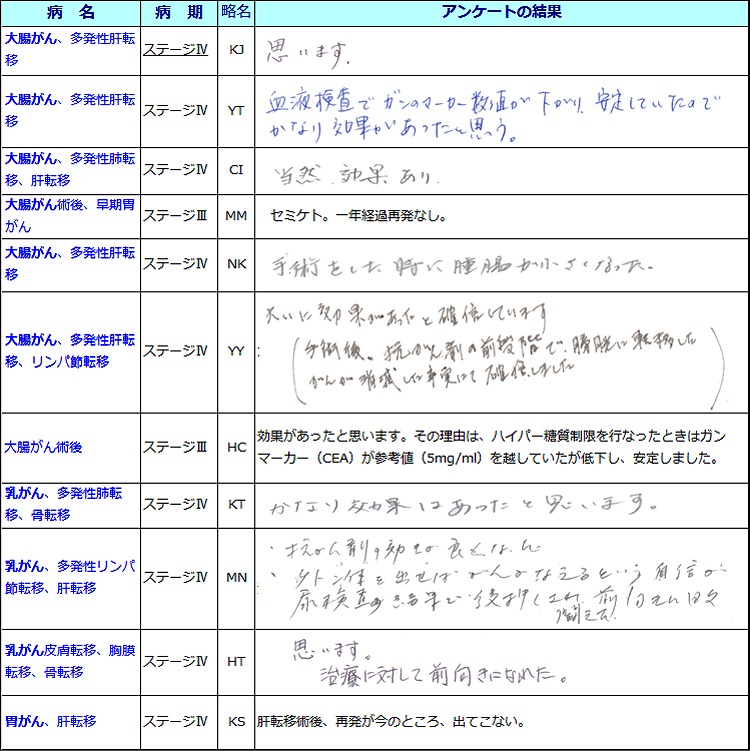 病 名 病 期 略名 アンケートの結果
大腸がん、多発性肝転
移
ステージⅣ KJ 思います.
大腸がん、多発性肝転
移
ステージⅣ YT
血液検査でガンのマーカー数値が下がり、安定していたので
かなり効果があったと思う。
大腸がん、多発性肺転
移、肝転移
ステージⅣ CI 当然.効果あり.
大腸がん術後、早期胃
がん
ステージⅢ MM セミケト。一年経過再発なし。
大腸がん、多発性肝転
移
ステージⅣ NK 手術をした時に腫腸が小さくなった。
大腸がん、多発性肝転
移、リンパ節転移
ステージⅣ YY
大いに効果があったと確信しています
(手術後、抗がん剤の前段階で、膀胱に転移した
がんが消滅した事実にて確信しました)
大腸がん術後 ステージⅢ HC
効果があったと思います。その理由は、ハイパー糖質制限を行なったときはガン
マーカー（CEA）が参考値（5mg/ml）を越していたが低下し、安定しました。
乳がん、多発性肺転
移、骨転移
ステージⅣ KT かなり効果はあったと思います。
乳がん、多発性リンパ
節転移、肝転移
ステージⅣ MN
・抗がん剤の効きが良く
・ケトン体を出せばがんが消えるという自信が
尿検査の結果で後押しされ、前向きに日々
闘えた.
乳がん皮膚転移、胸膜
転移、骨転移
ステージⅣ HT
思います。
治療に対して前向きになれた。
胃がん、肝転移 ステージⅣ KS 肝転移術後、再発が今のところ、出てこない。